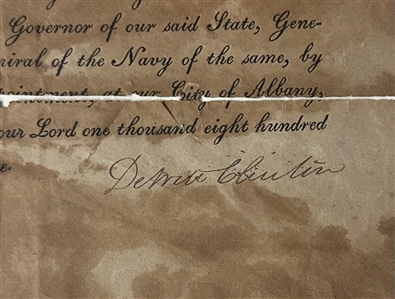 Governor of our said State, Gene-
miral of the Navy of the same, by
ointment, at our City of Albany,
our Lord one thousand eight hundred
e.
DeWitt Clinton